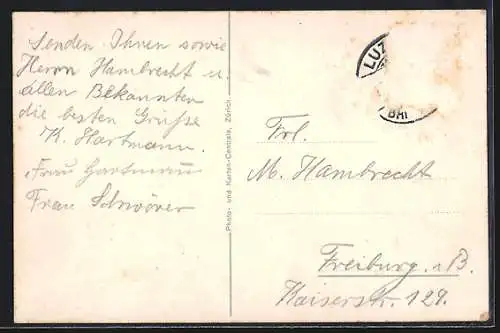 Senden Ihnen sowie
Herrn Hambrecht u.
allen Bekannten
die besten Grüsse
K. Hartmann.
Frau Hartmann
Frau Schwörer
Photo- und Karten-Centrale, Zürich
LUZ
BRI
Frl.
M. Hambrecht
Freiburg. i/B.
Kaiserstr. 129.